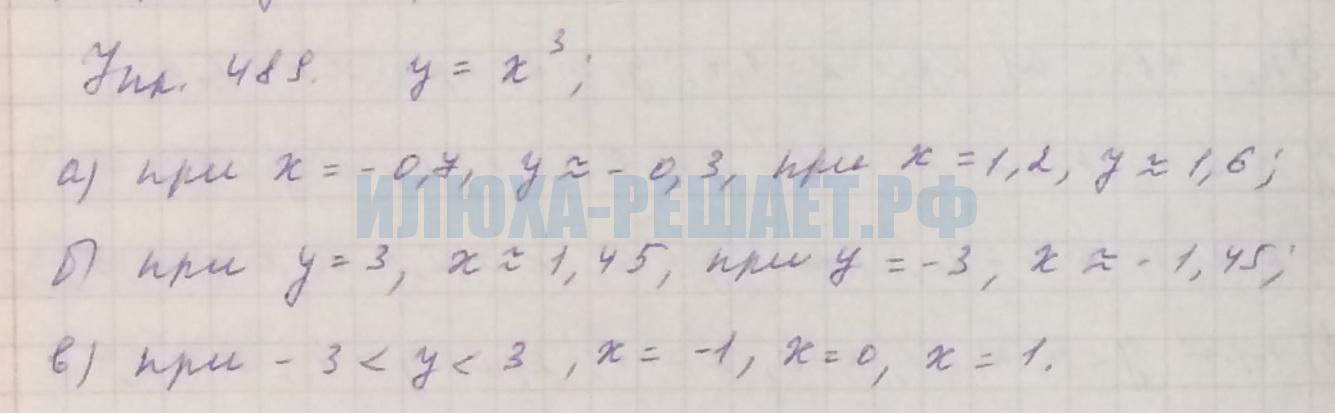 Упр. 489. y = x³;
а) при x = -0,7, y ≈ -0,3, при x = 1,2, y ≈ 1,6;
ИЛЮХА-РЕШАЕТ.РФ
б) при y = 3, x ≈ 1,45, при y = -3, x ≈ -1,45;
в) при -3 < y < 3, x = -1, x = 0, x = 1.